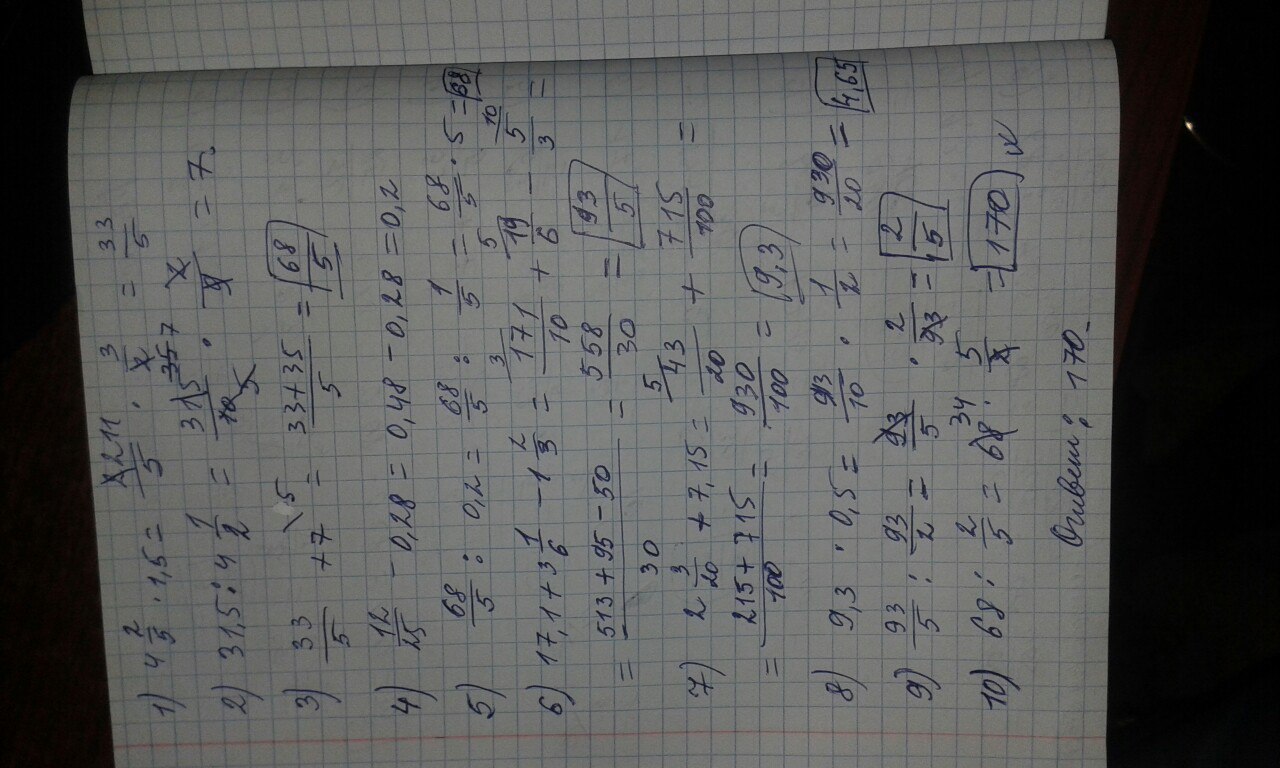 1) 4 2/5 · 1,5 = 22 11/5 · 3/2 = 33/5
2) 31,5 : 4 1/2 = 315 35 7/10 5 · 2/9 = 7.
3) 33/5 + 7 \5 = 33+35/5 = 68/5
4) 12/25 - 0,28 = 0,48 - 0,28 = 0,2
5) 68/5 : 0,2 = 68/5 : 1/5 = 68/5 · 5 = 68
6) 17,1 + 3 1/6 - 1 2/3 = 3 171/10 + 5 19/6 - 10 5/3 =
= 513 + 95 - 50/30 = 558/30 = 93/5
7) 2 3/20 + 7,15 = 5 43/20 + 715/100 =
= 215 + 715/100 = 930/100 = 9,3
8) 9,3 · 0,5 = 93/10 · 1/2 = 930/20 = 4,65
9) 93/5 : 93/2 = 93/5 · 2/93 = 2/5
10) 68 : 2/5 = 68 34 · 5/2 = 170
Ответ: 170